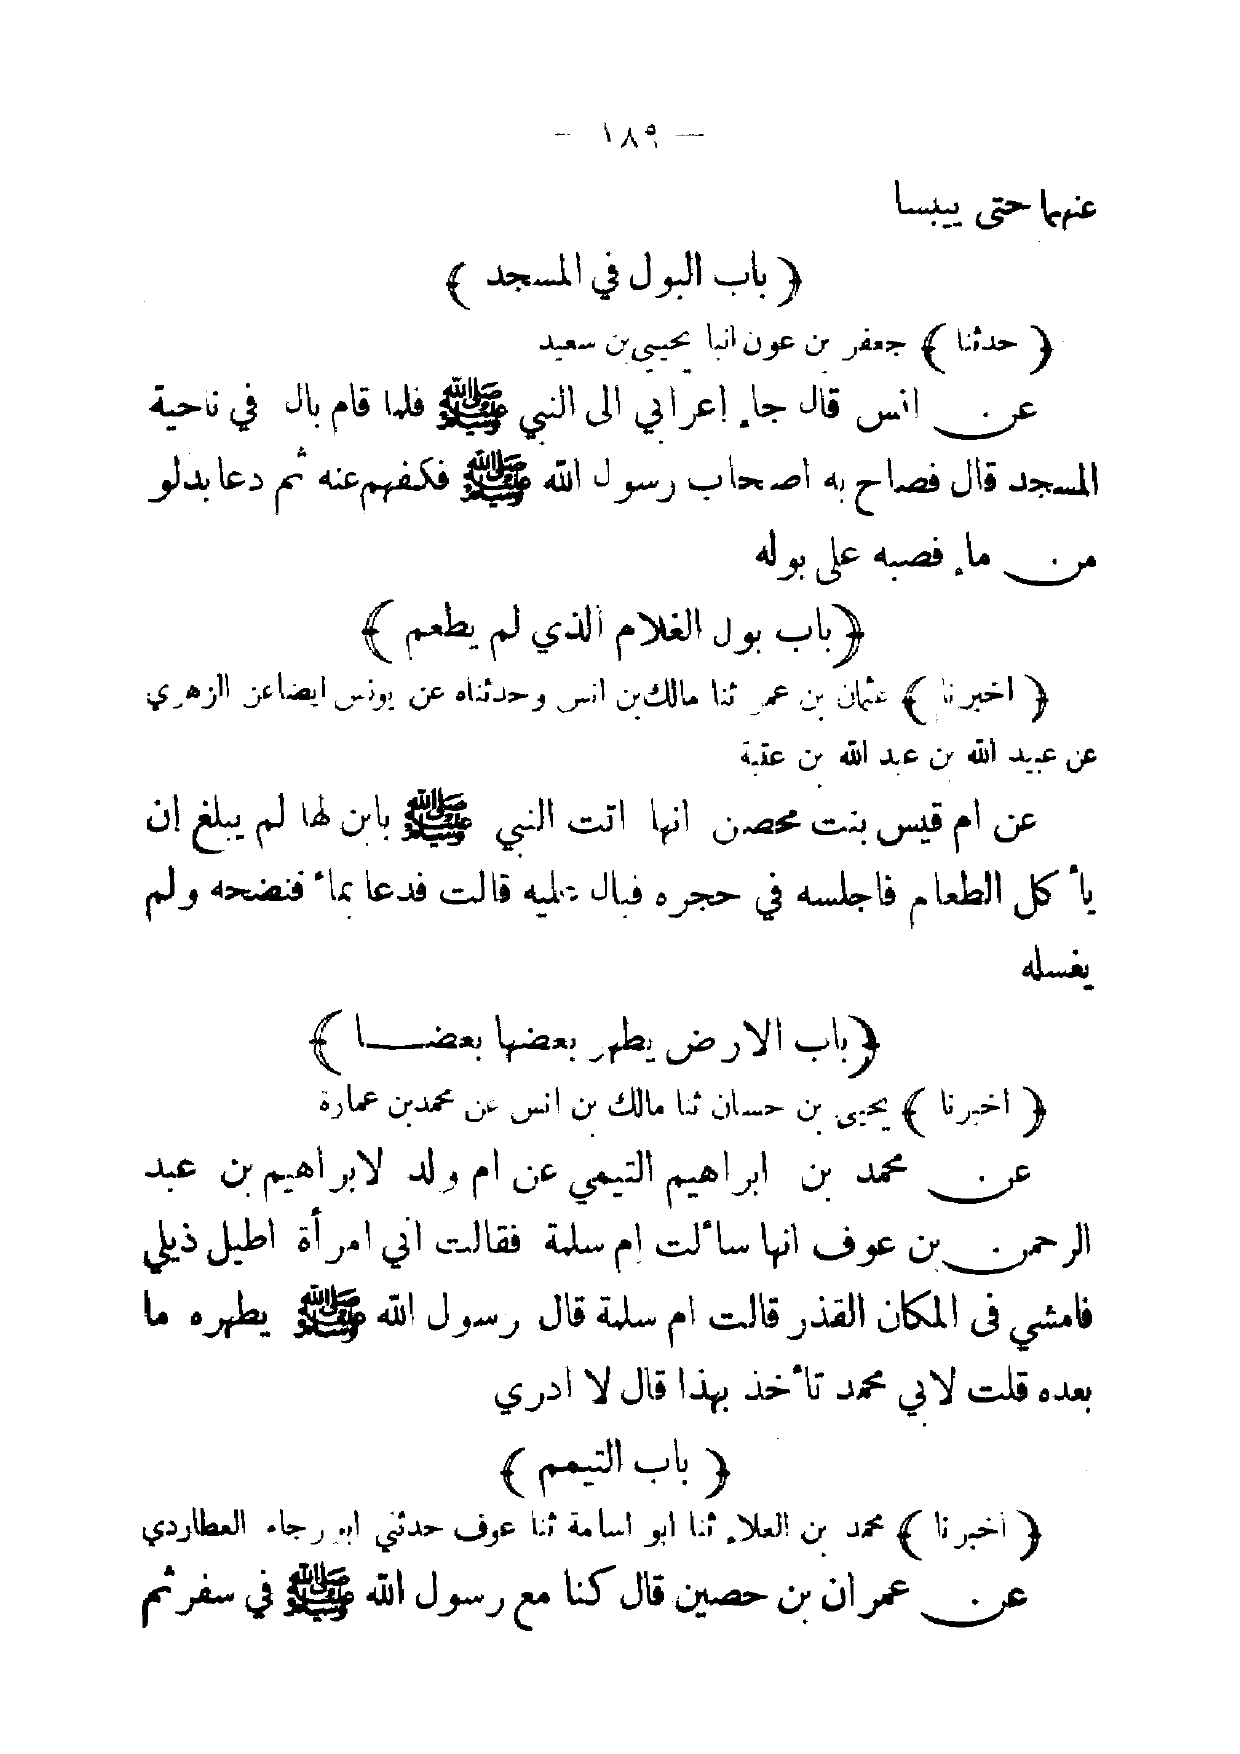 — ١٨٩ —
عنهما حتى ييبسا
﴿ باب البول في المسجد ﴾
﴿ حدثنا ﴾ جعفر بن عون انبا يحيى بن سعيد
عن انس قال جاء إعرابي الى النبي ﷺ فلما قام بال في ناحية
المسجد قال فصاح به اصحاب رسول الله ﷺ فكفهم عنه ثم دعا بدلو
من ماء فصبه على بوله
﴿ باب بول الغلام الذي لم يطعم ﴾
﴿ اخبرنا ﴾ عثمان بن عمر ثنا مالك بن انس وحدثناه عن يونس ايضا عن الزهري
عن عبيد الله بن عبد الله بن عتبة
عن ام قيس بنت محصن انها اتت النبي ﷺ بابن لها لم يبلغ إن
يأكل الطعام فاجلسه في حجره فبال عليه قالت فدعا بماء فنضحه ولم
يغسله
﴿ باب الارض يطهر بعضها بعضا ﴾
﴿ اخبرنا ﴾ يحيى بن حسان ثنا مالك بن انس عن محمد بن عمارة
عن محمد بن ابراهيم التيمي عن ام ولد لابراهيم بن عبد
الرحمن بن عوف انها سألت إم سلمة فقالت اني امرأة اطيل ذيلي
فامشي فى المكان القذر قالت ام سلمة قال رسول الله ﷺ يطهره ما
بعده قلت لابي محمد تأخذ بهذا قال لا ادري
﴿ باب التيمم ﴾
﴿ اخبرنا ﴾ محمد بن العلاء ثنا ابو اسامة ثنا عوف حدثني ابو رجاء العطاردي
عن عمران بن حصين قال كنا مع رسول الله ﷺ في سفر ثم